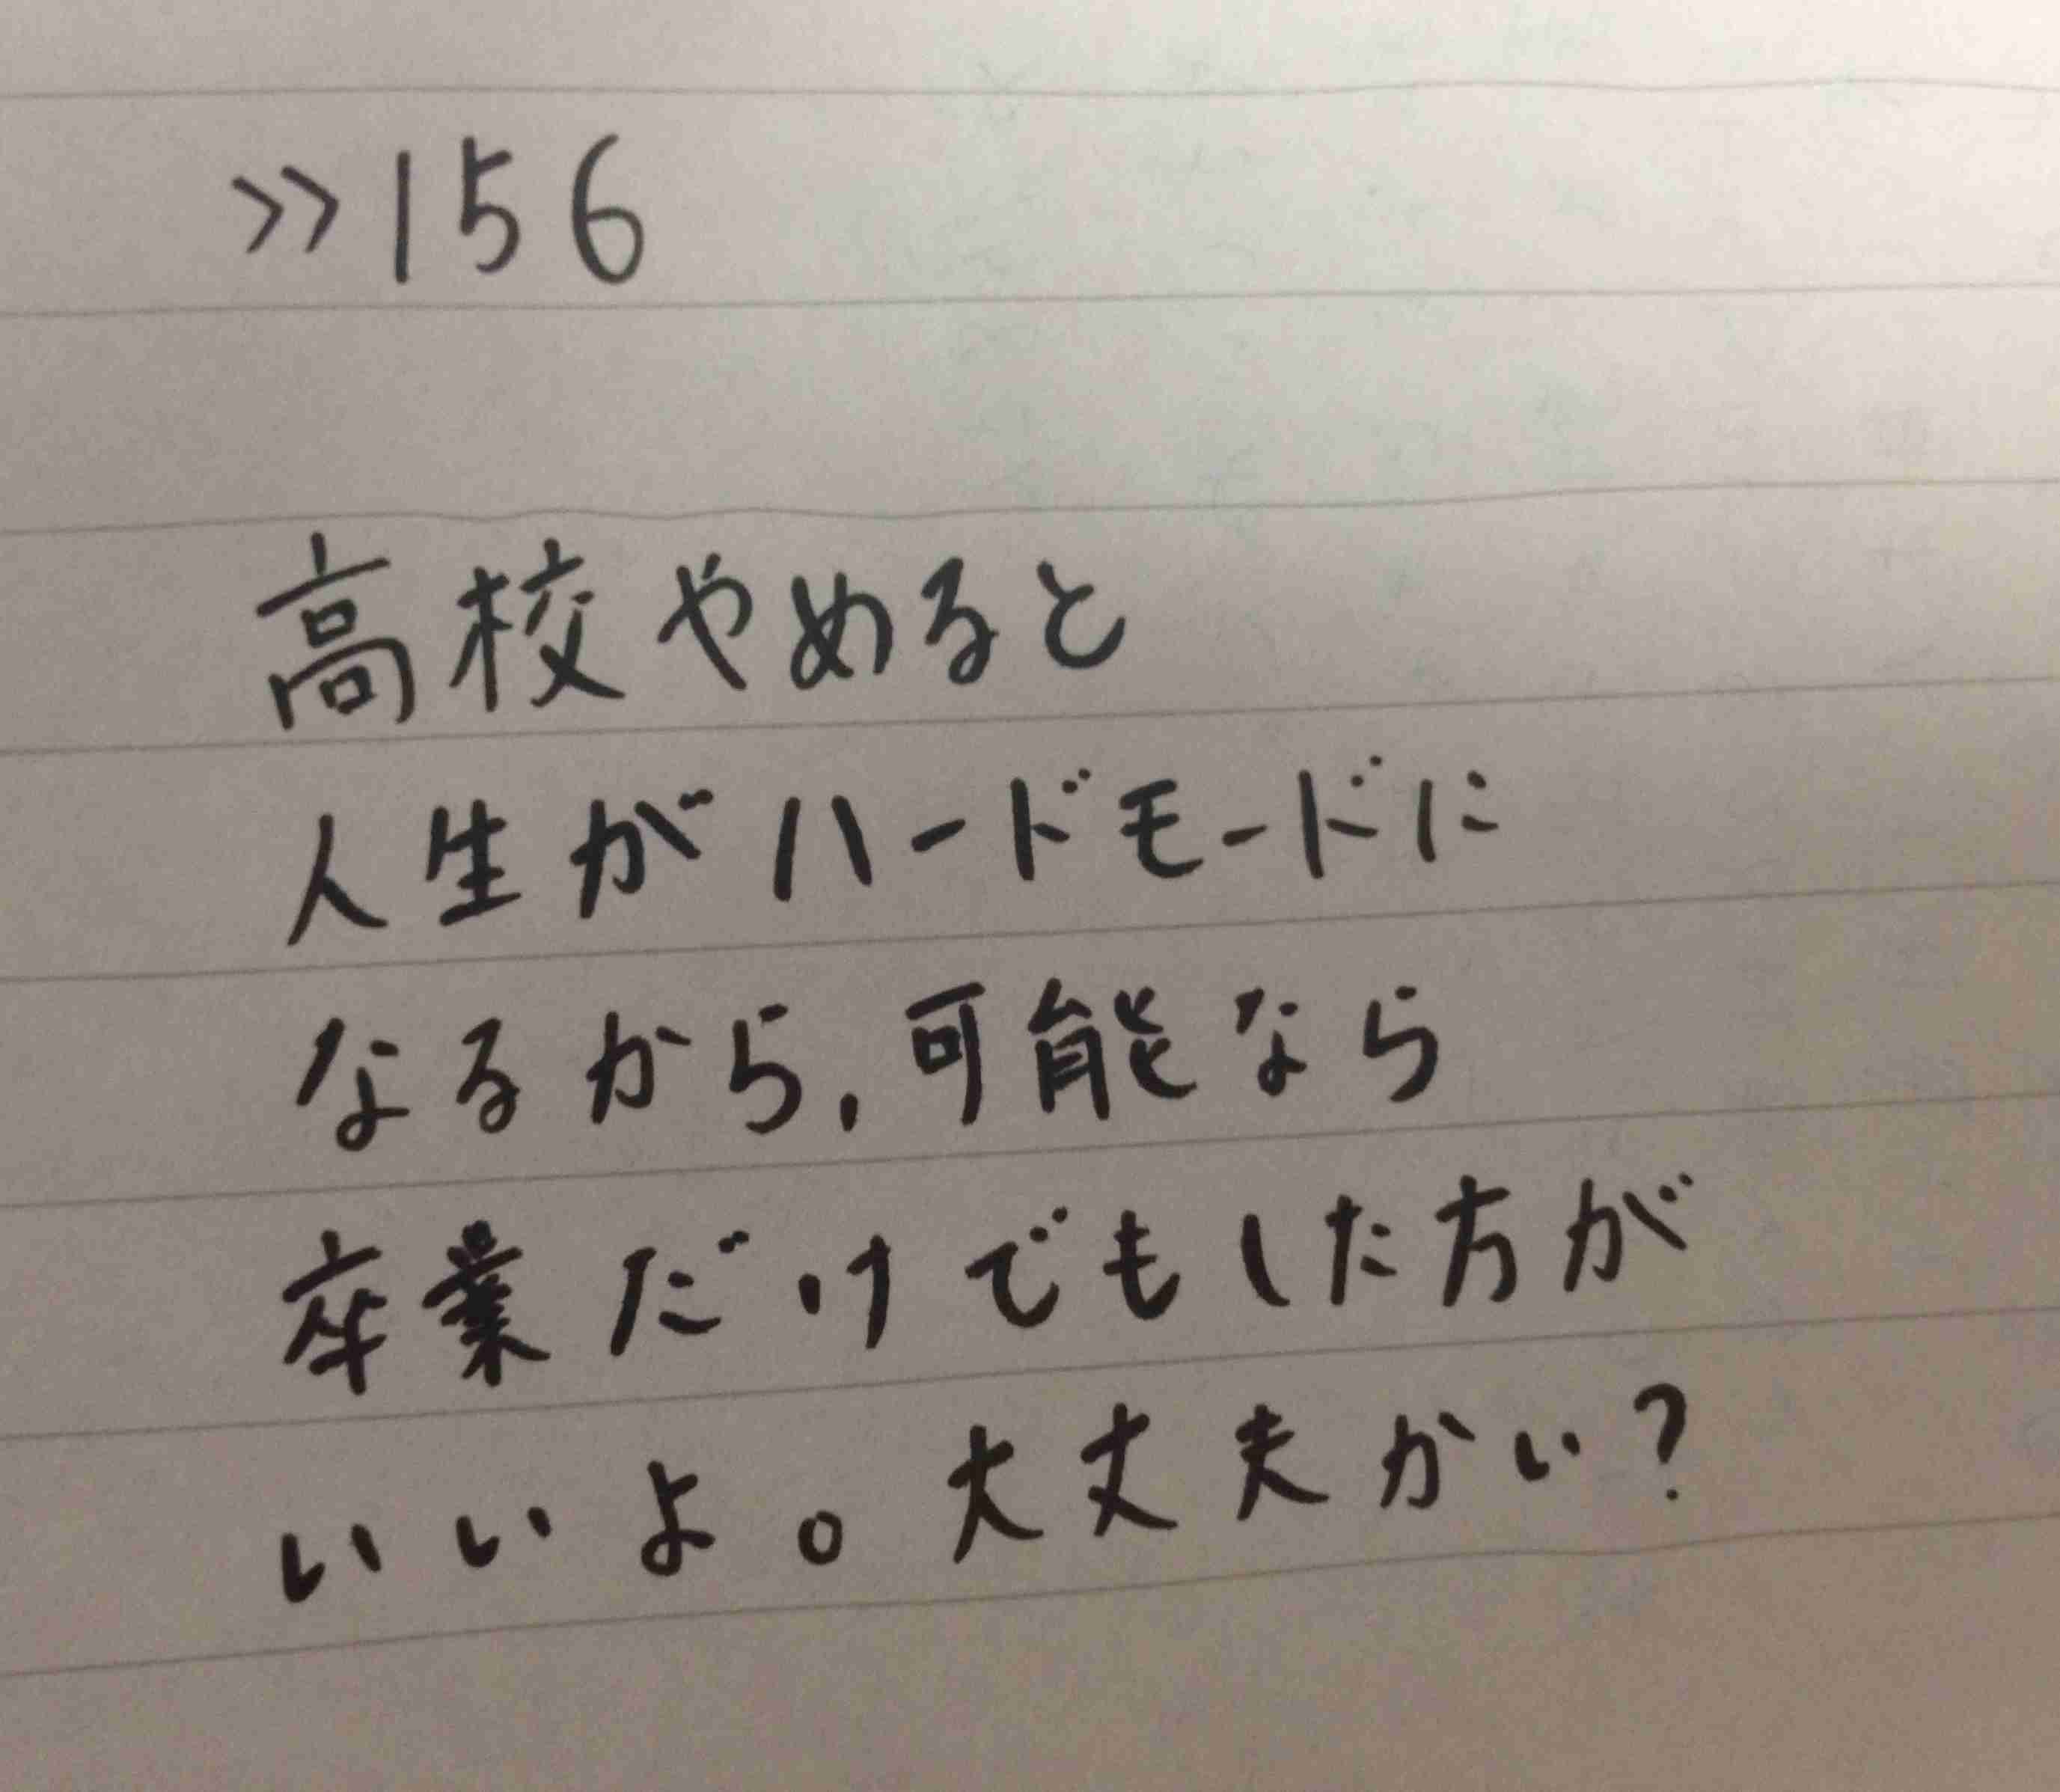 >>156
高校やめると
人生がハードモードに
なるから,可能なら
卒業だけでもした方が
いいよ。大丈夫かい?